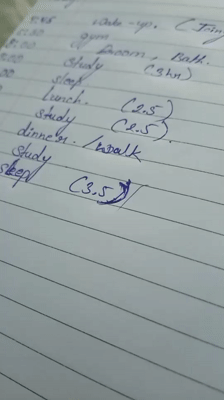 wake-up.
gym
Room, Bath.
study (3hr)
sleep
lunch. (2.5)
study (2.5).
dinner. /walk
study
sleep (3.5)